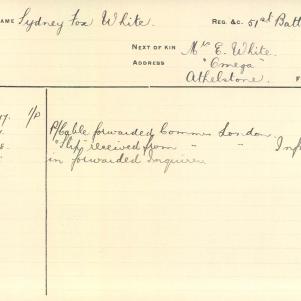 NAME Sydney Fox White REG. &C. 51st Batt
NEXT OF KIN Mrs E. White.
ADDRESS "Omega"
Athelstone. F
17. 1/P P/Cable forwarded Commrs London.
"Slip" received from " " Inf
in forwarded Inquirer